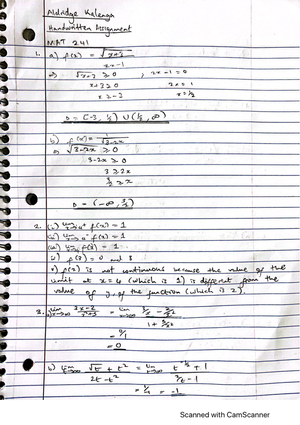 Aldridge Kalenga
Handwritten Assignment
MAT 241
1. a) f(x) = √(x+3)
2x-1
⇒ √(x+3) ≥ 0 , 2x-1=0
x+3 ≥ 0 2x=1
x ≥ -3 x=1/2
D = [-3, 1/2) ∪ (1/2, ∞)
b) f(x) = 1/√(3-2x)
⇒ √(3-2x) ≥ 0
3-2x ≥ 0
3 ≥ 2x
3/2 ≥ x
D = (-∞, 3/2)
f(x) = 1
f(x) = 1
f(x) = 1
f(x) is not continuous because the value of the
limit at x=4 (which is 1) is different from the
value of of the function (which is 2).
3. lim 3x-2
= 0/1
= 0
lim √t + t² = lim + 1
2t-t² 2/t-1
= -1
Scanned with CamScanner